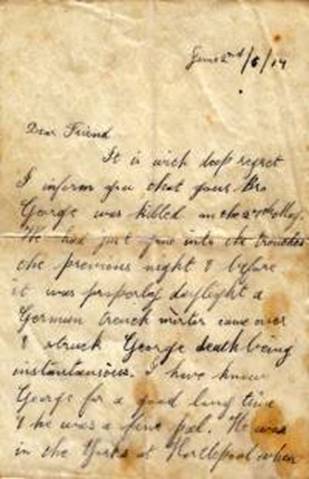 June 2nd/6/19
Dear Friend
It is with deep regret
I inform you that your Bro
George was killed on the 27th May.
We had just gone into the trenches
the previous night & before
it was properly daylight a
German trench morter came over
& struck George death being
instantaneous. I have known
George for a good long time
& he was a fine pal. He was
in the Yorks at Hartlepool when